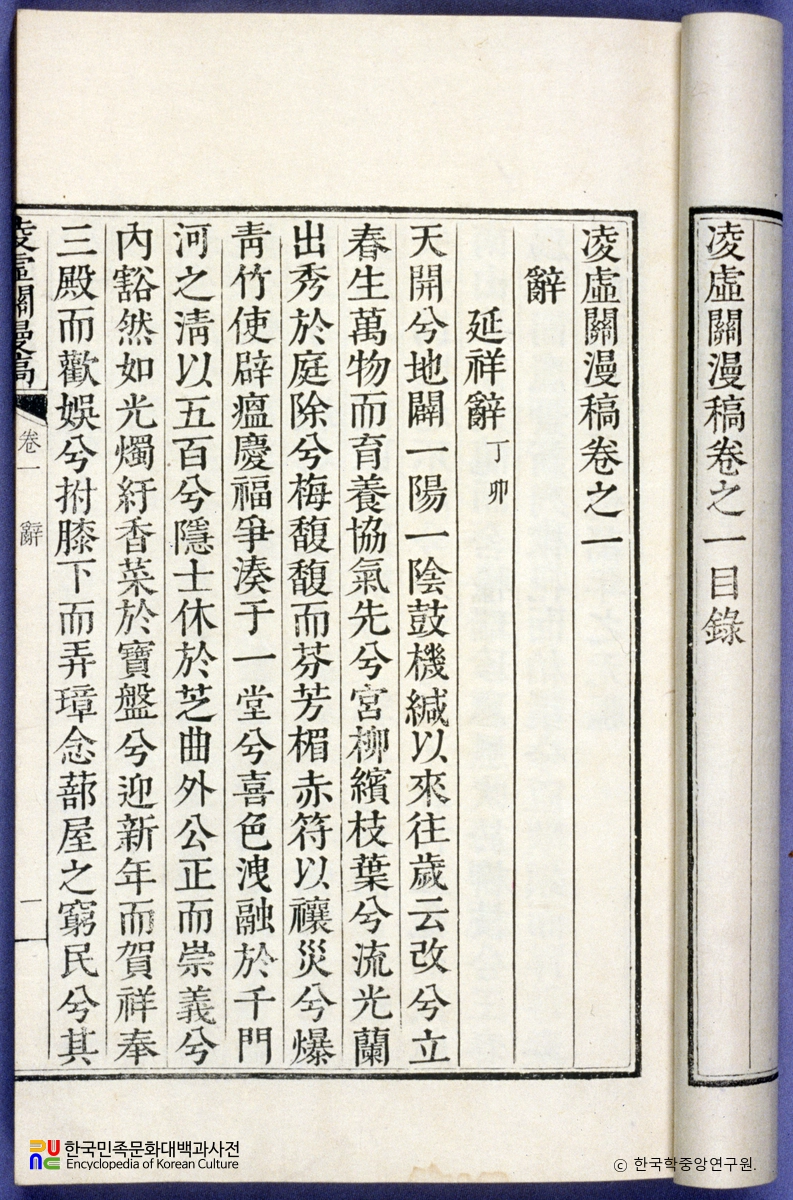 凌虛關漫稿卷之一目錄
凌虛關漫稿卷之一
辭
延祥辭 丁卯
天開兮地闢一陽一陰鼓機緘以來往歲云改兮立
春生萬物而育養協氣先兮宮柳繽枝葉兮流光蘭
出秀於庭除兮梅馥馥而芬芳楣赤符以禳災兮爆
靑竹使辟瘟慶福爭湊于一堂兮喜色洩融於千門
河之淸以五百兮隱士休於芝曲外公正而崇義兮
內豁然如光燭紆香菜於寶盤兮迎新年而賀祥奉
三殿而歡娛兮拊膝下而弄璋念蔀屋之窮民兮其
凌虛關漫稿 卷一 辭 一
한국민족문화대백과사전
Encyclopedia of Korean Culture
© 한국학중앙연구원.